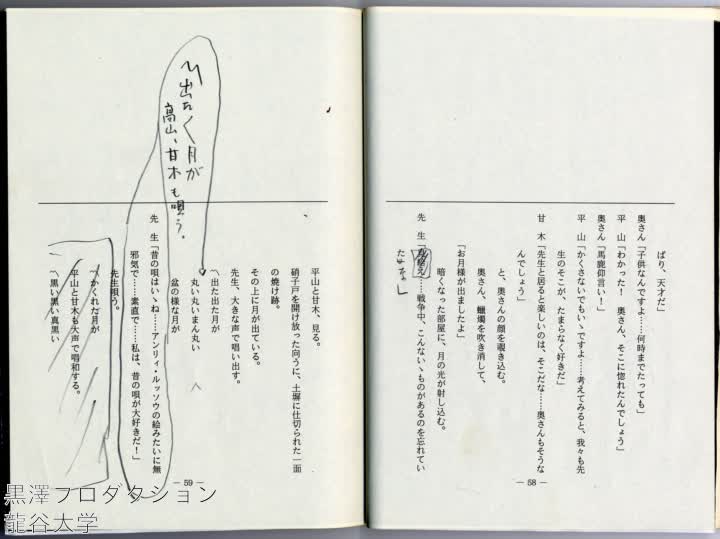 ぱり、天才だ」
奥さん「子供なんですよ……何時までたっても」
平　山「わかった！　奥さん、そこに惚れたんでしょう」
奥さん「馬鹿仰言い！」
平　山「かくさないでもいゝですよ……考えてみると、我々も先
生のそこが、たまらなく好きだ」
甘　木「先生と居ると楽しいのは、そこだな……奥さんもそうな
んでしょう」
と、奥さんの顔を覗き込む。
奥さん、蠟燭を吹き消して、
「お月様が出ましたよ」
暗くなった部屋に、月の光が射し込む。
先　生「……戦争中、こんないゝものがあるのを忘れてい
た
な」
— 58 —
平山と甘木、見る。
硝子戸を開け放った向うに、土塀に仕切られた一面
の焼け跡。
その上に月が出ている。
先生、大きな声で唱い出す。
〽出た出た月が
丸い丸いまん丸い
盆の様な月が
先　生「昔の唄はいゝね……アンリィ・ルッソウの絵みたいに無
邪気で……素直で……私は、昔の唄が大好きだ！」
先生唄う。
〽かくれた月が
平山と甘木も大声で唱和する。
〽黒い黒い真黒い
— 59 —
〽出た〱月が
高山、甘木も唄う。
黒澤プロダクション
龍谷大学